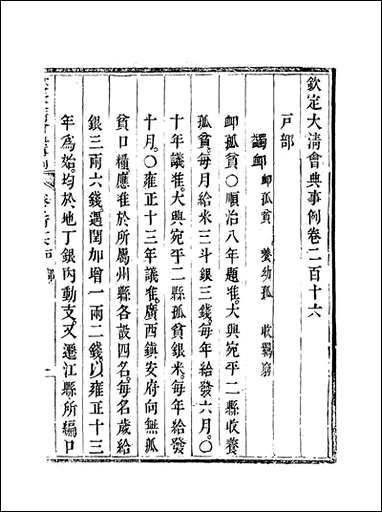 欽定大清會典事例卷二百十六
戶部
蠲卹 卹孤貧 養幼孤 收羇窮
卹孤貧○順治八年題准。大興宛平二縣收養
孤貧。每月給米三斗銀三錢。每年給發六月。○
十年議准。大興宛平二縣孤貧銀米。每年給發
十月。○雍正十三年議准。廣西鎮安府向無孤
貧口糧。應准於所屬州縣各設四名。每名歲給
銀三兩六錢。遇閏加增一兩二錢。以雍正十三
年為始。均於地丁銀內動支。又遷江縣所編口